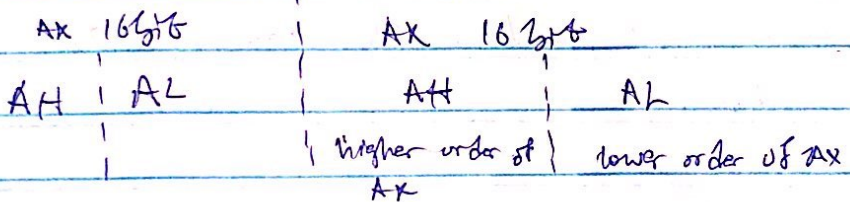 AX 16bit AX 16 bit
AH AL AH AL
higher order of lower order of AX
AX